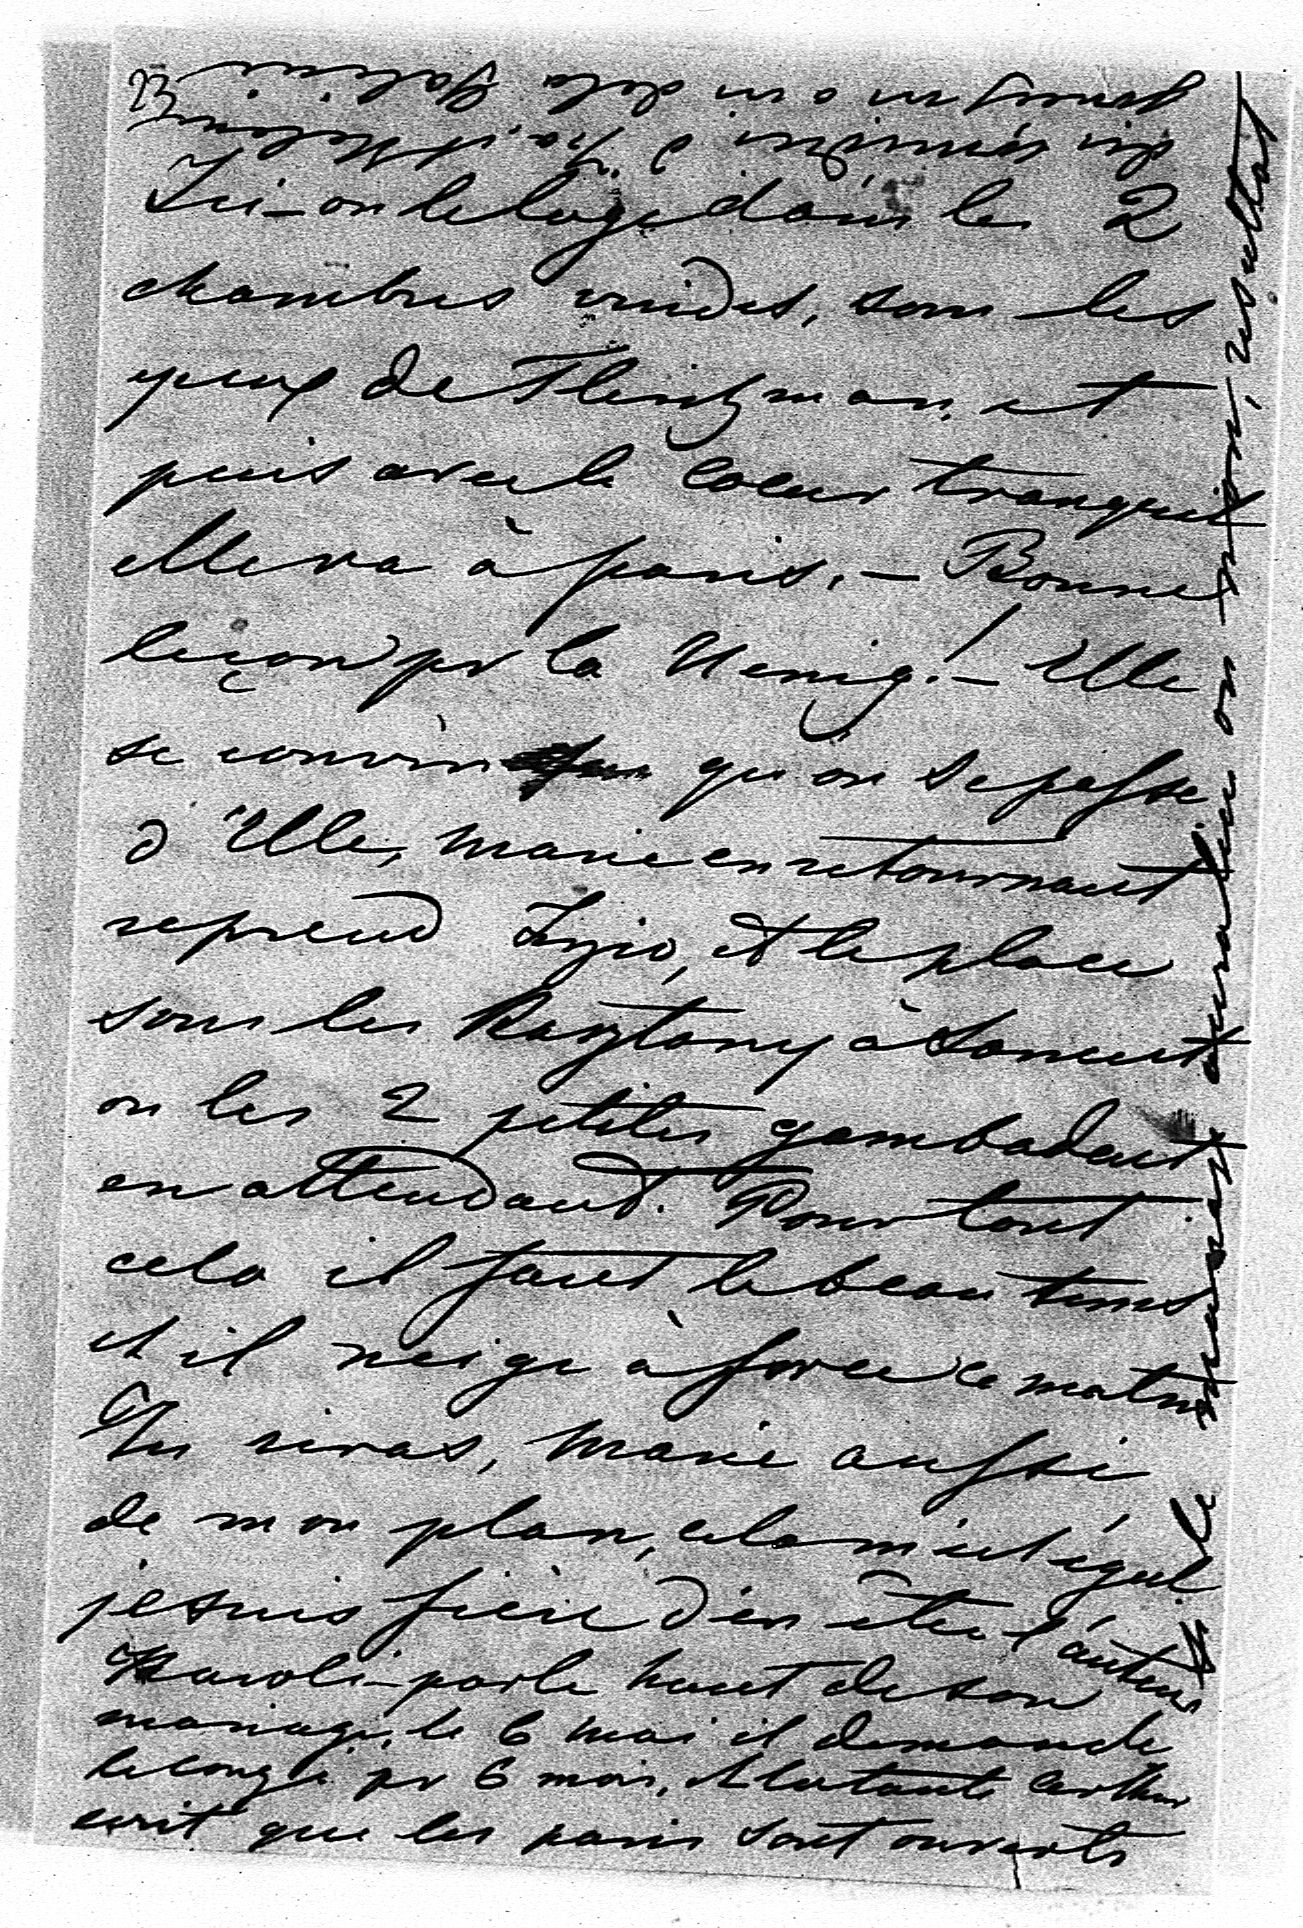 23
Ici – on le loge dans les 2
chambres vuides, sous les
yeux de Flentzman et
puis avec le coeur tranquil
elle va à paris. – Bonne
leçon pr la Nemig! – Elle
se convin qu'on se passe
d'Elle, marie en retournant
reprend Lyio, et le place
sous les à
ou les 2 petites gambadent
en attendant. Pour tout
cela il faut le beau tems
et il neige à force ce matin
Tu riras, marie aussi
de mon plan, cela m'est égal
je suis fière d'en être l'auteur
Karoli – parle haut de son
mariage, le 6 mai il demande
le congé pr 6 mois, et la tante
ecrit que les paris sont ouverts
le mariage aura lieu ou non, resultat